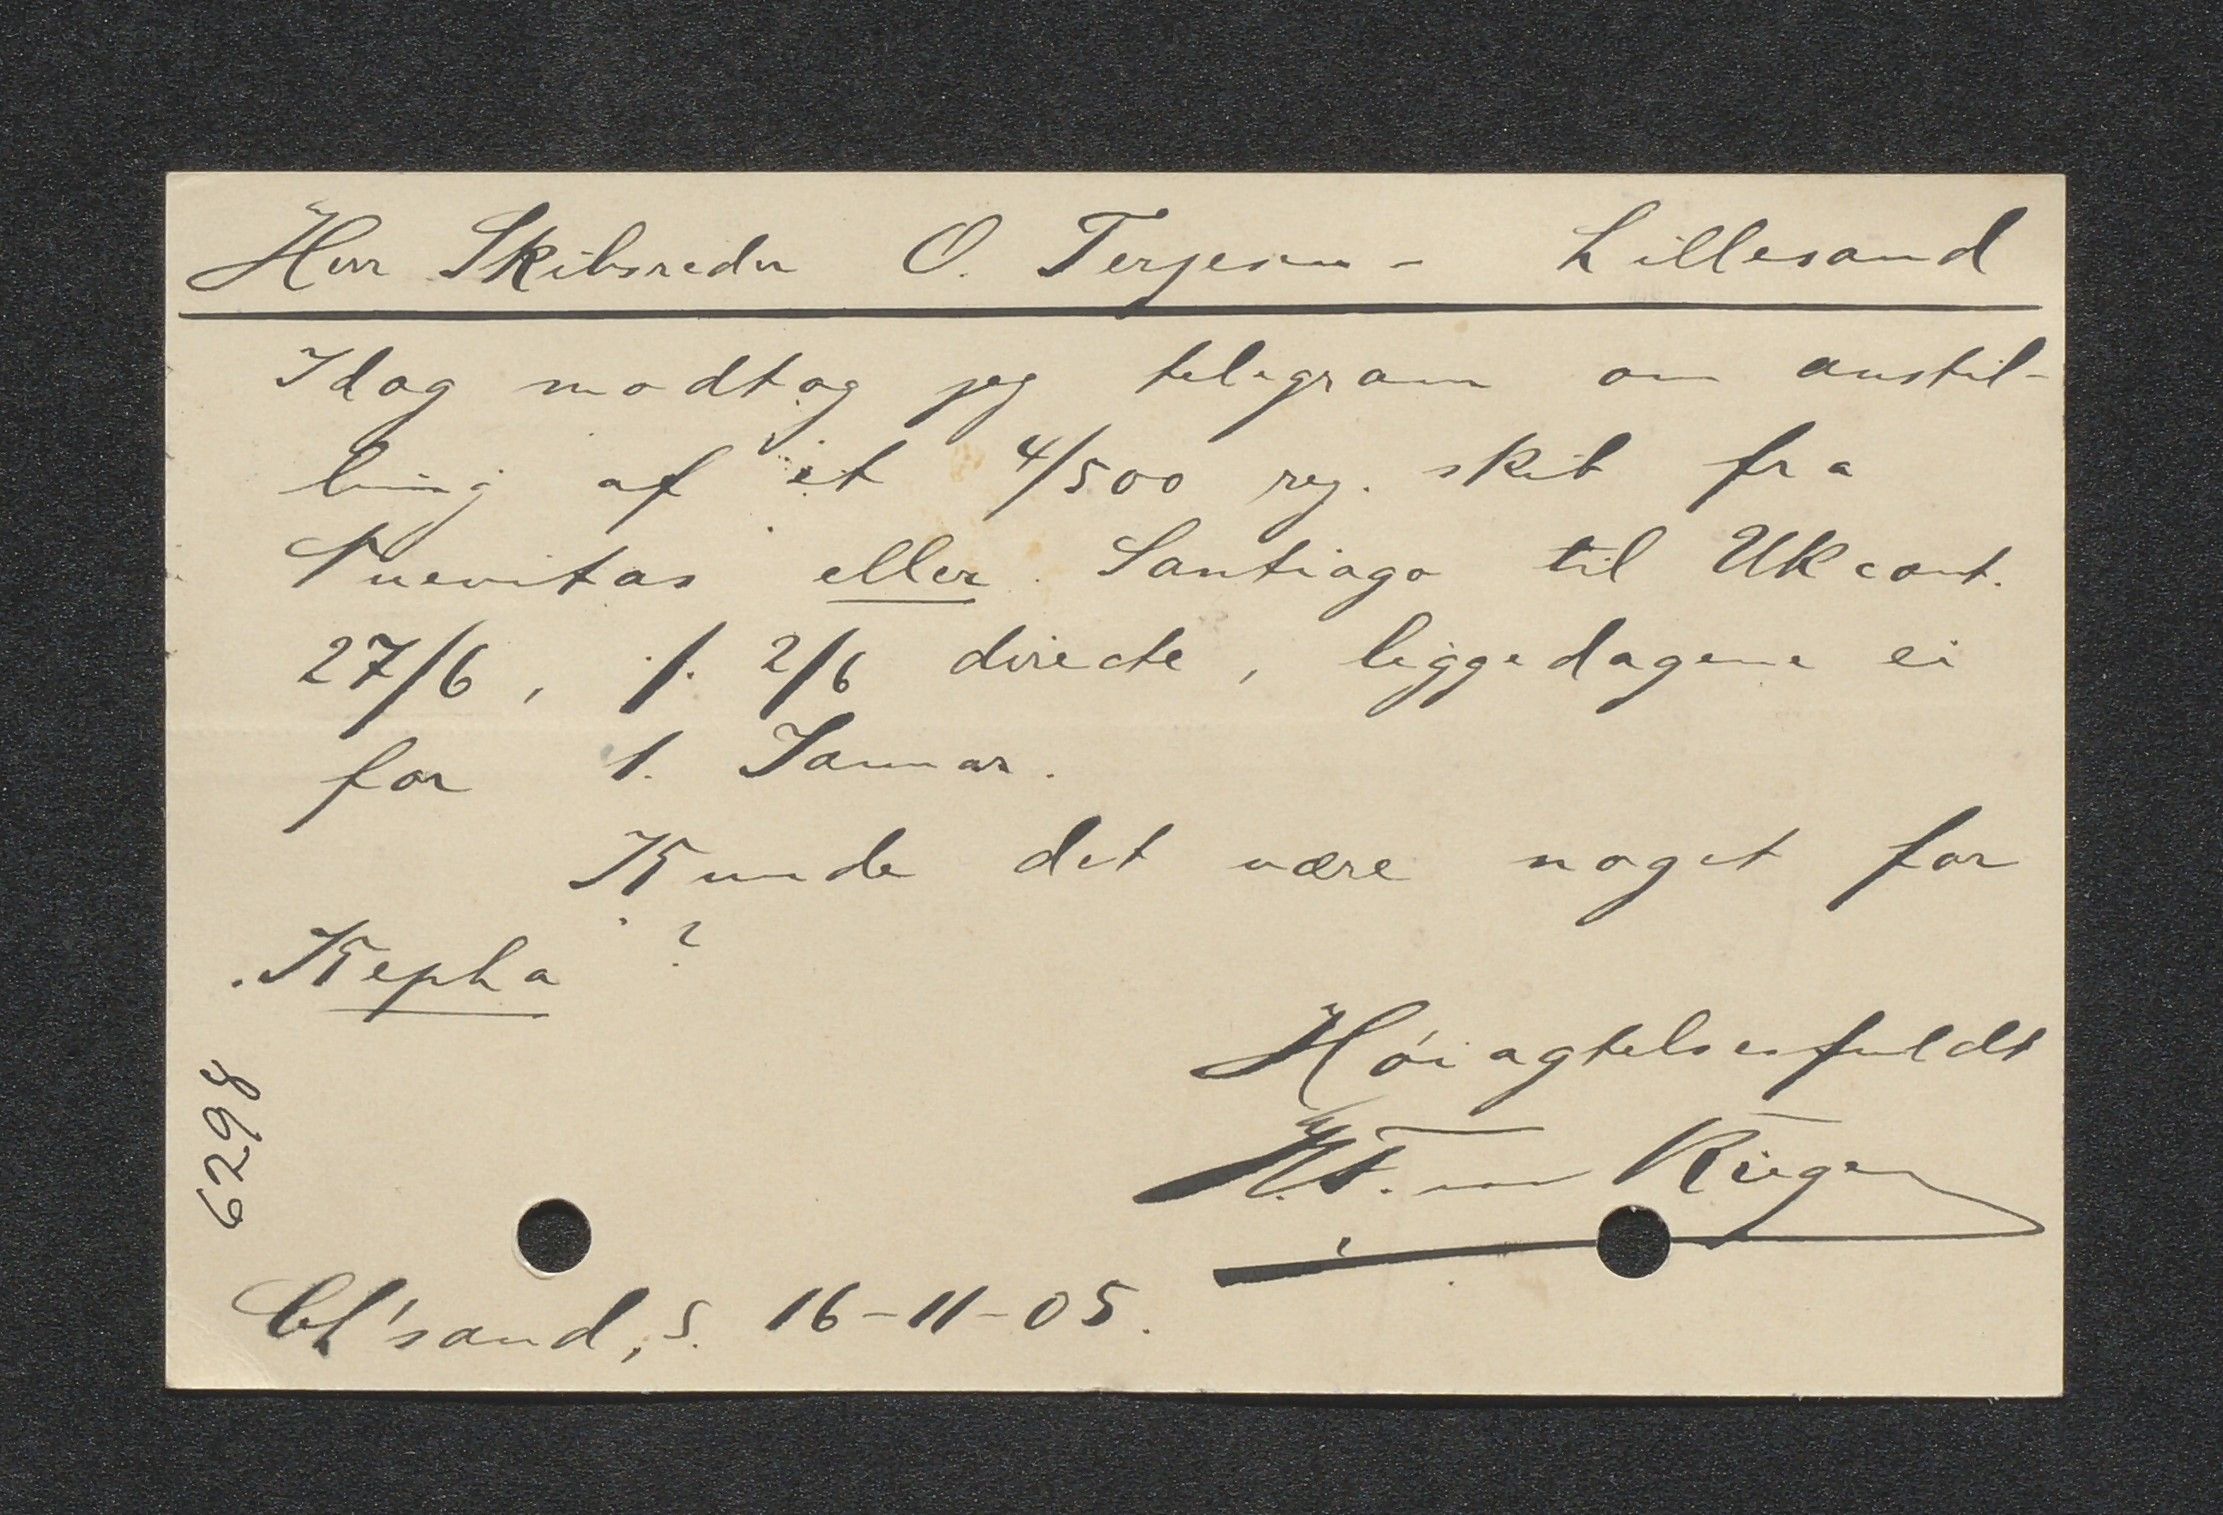 Herr Skibsreder O. Terjesen - Lillesand
Idag modtog jeg telegram om anstil-
ling af et 4/500 reg. skib fra
Nuevitas eller Santiago til UK cont.
27/6, /. 2/6 directe, liggedagene ei
for 1. Januar.
Kunde det være noget for
Kepha ?
Høiagtelsesfuldt
6298
Ch'sand, S. 16-11-05.